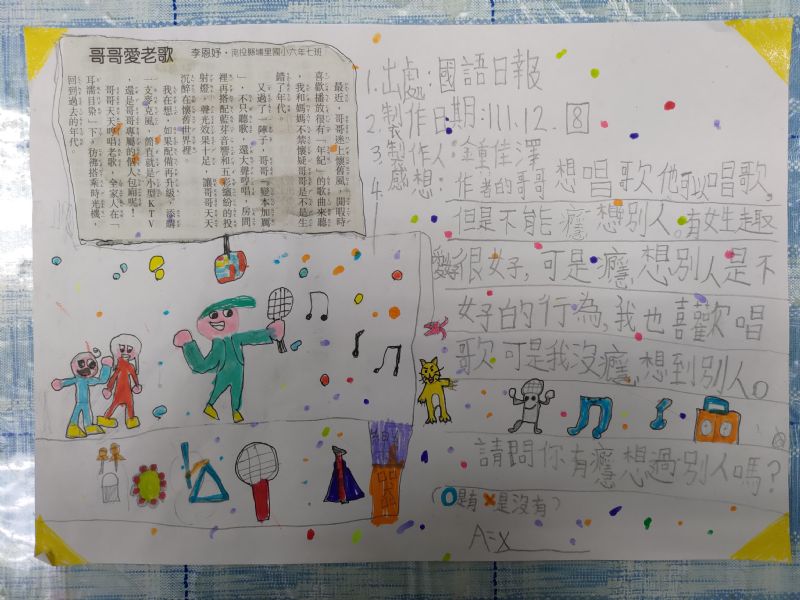 哥哥愛老歌 李恩妤・南投縣埔里國小六年七班
最近，哥哥迷上懷舊風，閒暇時
喜歡播放很有「年紀」的歌曲來聽
，我和媽媽不禁懷疑哥哥是不是生
錯了年代。
又過了一陣子，哥哥「變本加厲
」，不只聽歌，還大聲哼唱，房間
裡再搭配藍芽音響和五彩繽紛的投
射燈，聲光效果十足，讓哥哥天天
沉醉在懷舊世界裡。
我在想，如果配備再升級，添購
一支麥克風，簡直就是小型KTV
，還是哥哥專屬的個人包廂呢！
哥哥天天哼唱老歌，全家人在「
耳濡目染」下，彷彿搭乘時光機，
回到過去的年代。
1. 出處：國語日報
2. 製作日期：111.12.8
3. 製作人：鍾佳澤
4. 感想：作者的哥哥想唱歌他可以唱歌，
但是不能癮想別人。有女生走取
很好，可是癮想別人是不
好的行為，我也喜歡唱
歌可是我沒癮想到別人。
請問你有癮想過別人嗎？
（O是有×是沒有）
A=x